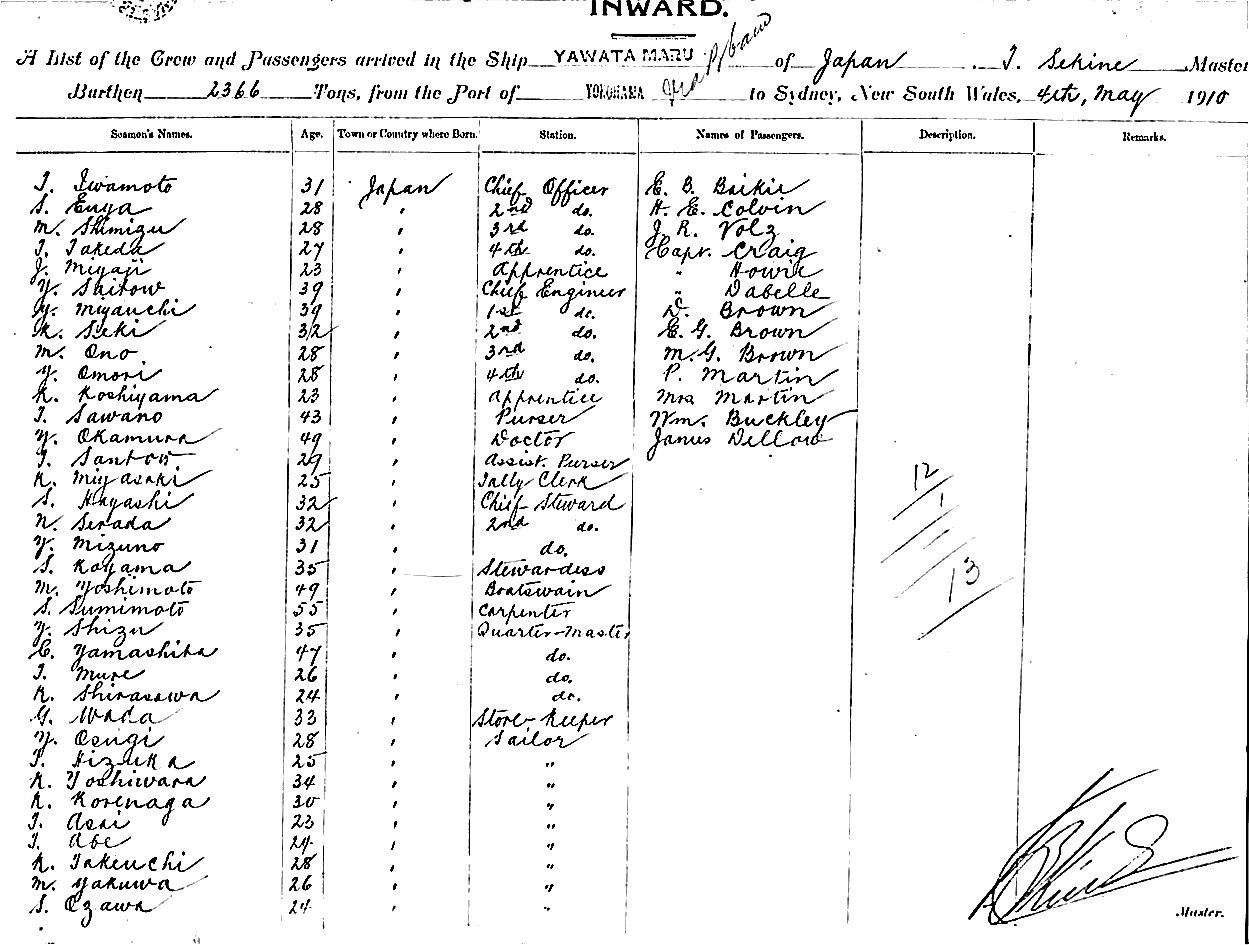 INWARD.
A List of the Crew and Passengers arrived in the Ship YAWATA MARU of Japan T. Sekine Master
Burthen 2366 Tons, from the Port of YOKOHAMA to Sydney, New South Wales, 4th, May 1910
Seamen's Names. Age. Town or Country where Born. Station. Names of Passengers. Description. Remarks.
T. Iwamoto 31 Japan Chief Officer E. B. Baikie
S. Enya 28 " 2nd do. H. E. Colvin
M. Shimizu 28 " 3rd do. J. R. Volz
T. Takeda 27 " 4th do. Capt. Craig
J. Miyaji 23 " Apprentice " Howie
Y. Saitow 39 " Chief Engineer " Dabelle
Y. Miyauchi 39 " 1st do. D. Brown
K. Seki 32 " 2nd do. E. G. Brown
M. Ono 28 " 3rd do. M. G. Brown
Y. Omori 28 " 4th do. P. Martin
K. Koshiyama 23 " Apprentice Mrs Martin
T. Sawano 43 " Purser Wm. Buckley
Y. Okamura 49 " Doctor James Dellow
T. Santow 29 " Assist. Purser
K. Miyasaki 25 " Tally Clerk 12
S. Hayashi 32 " Chief Steward 1
N. Serada 32 " 2nd do.
Y. Mizuno 31 " do.
S. Koyama 35 " Stewardess 13
M. Yoshimoto 49 " Boatswain
S. Sumimoto 55 " Carpenter
Y. Shizu 35 " Quarter-Master
C. Yamashita 47 " do.
T. Mure 26 " do.
K. Shirasawa 24 " do.
G. Wada 33 " Store-Keeper
Y. Osugi 28 " Sailor
T. Hizuka 25 " "
K. Yoshiwara 34 " "
K. Korenaga 30 " "
T. Asai 23 " "
T. Abe 24 " "
K. Takeuchi 28 " "
M. Yakuwa 26 " "
S. Ozawa 24 " "
Master.